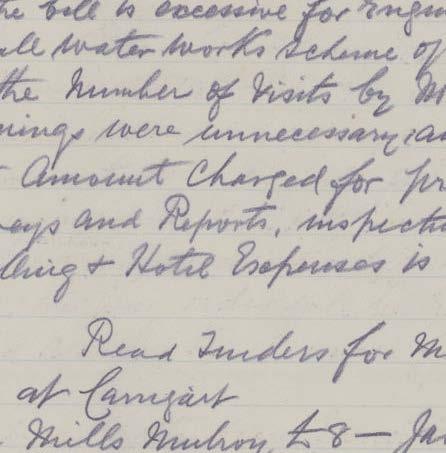 he bill is excessive for Engin
all water works scheme of
the Number of Visits by M
nings were unnecessary, an
Amount Charged for pr
eys and Reports, inspecti
lling & Hotel Expenses is
Read Tenders for M
at
Mills Mulroy £8 — Jam